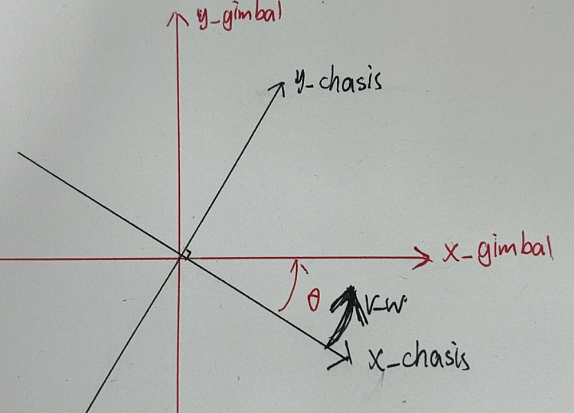 y_gimbal
y_chasis
x_gimbal
θ
v_w
x_chasis